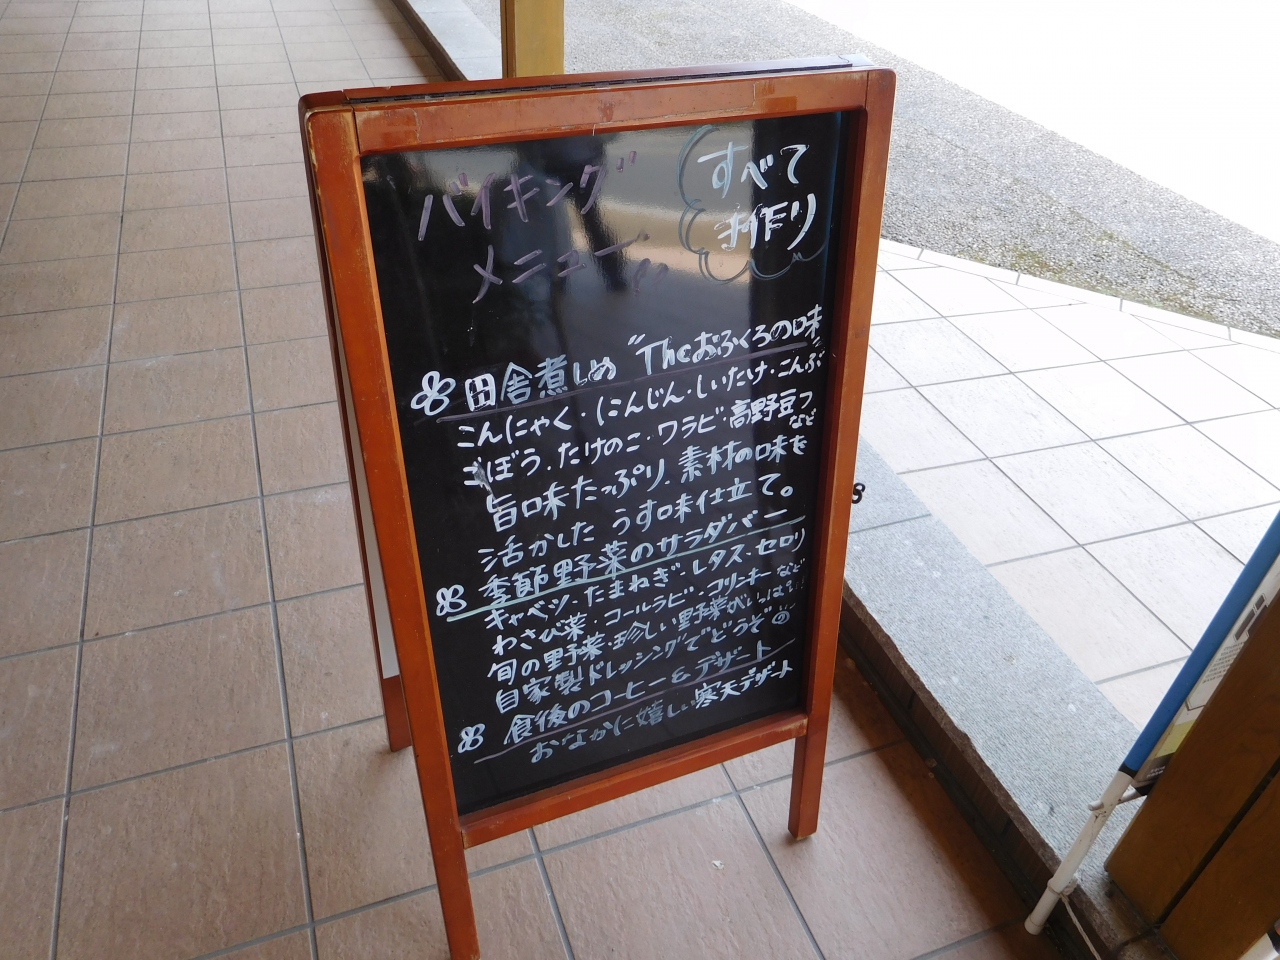 バイキング
メニュー!!
すべて
手作り
田舎煮しめ "Theおふくろの味"
こんにゃく・にんじん・しいたけ・こんぶ
ごぼう・たけのこ・ワラビ・高野豆フ
など
旨味たっぷり、素材の味を
活かした うす味仕立て。
季節野菜のサラダバー
キャベツ・たまねぎ・レタス・セロリ
わさび菜・コールラビ・コリンキーなど
旬の野菜・珍しい野菜がいっぱい!!
自家製ドレッシングでどうぞ
食後のコーヒー&デザート
おなかに嬉しい寒天デザート